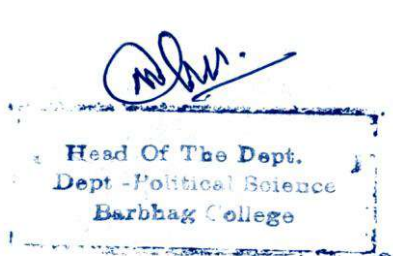 Head Of The Dept.
Dept -Political Science
Barbhag College